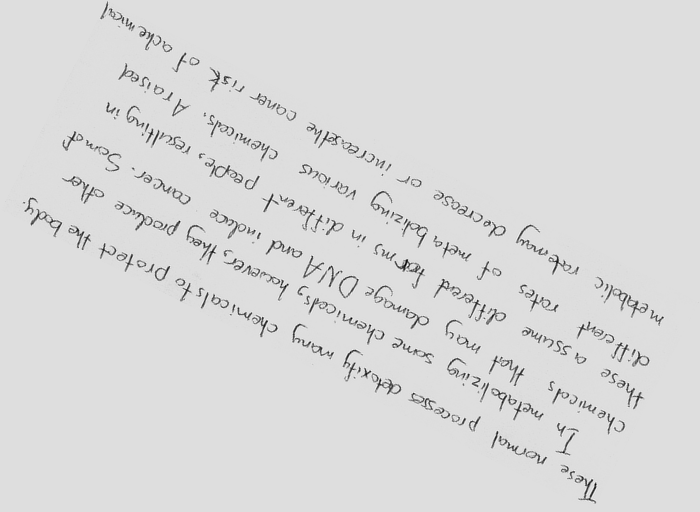 These normal processes detoxify many chemicals to protect the body.
In metabolizing some chemicals, however, they produce other
chemicals that may damage DNA and induce cancer. Somof
these assume different forms in different people, resulting in
different rates of metabolizing various chemicals. A raised
metabolic rate may decrease or increase the caner risk of a chemical